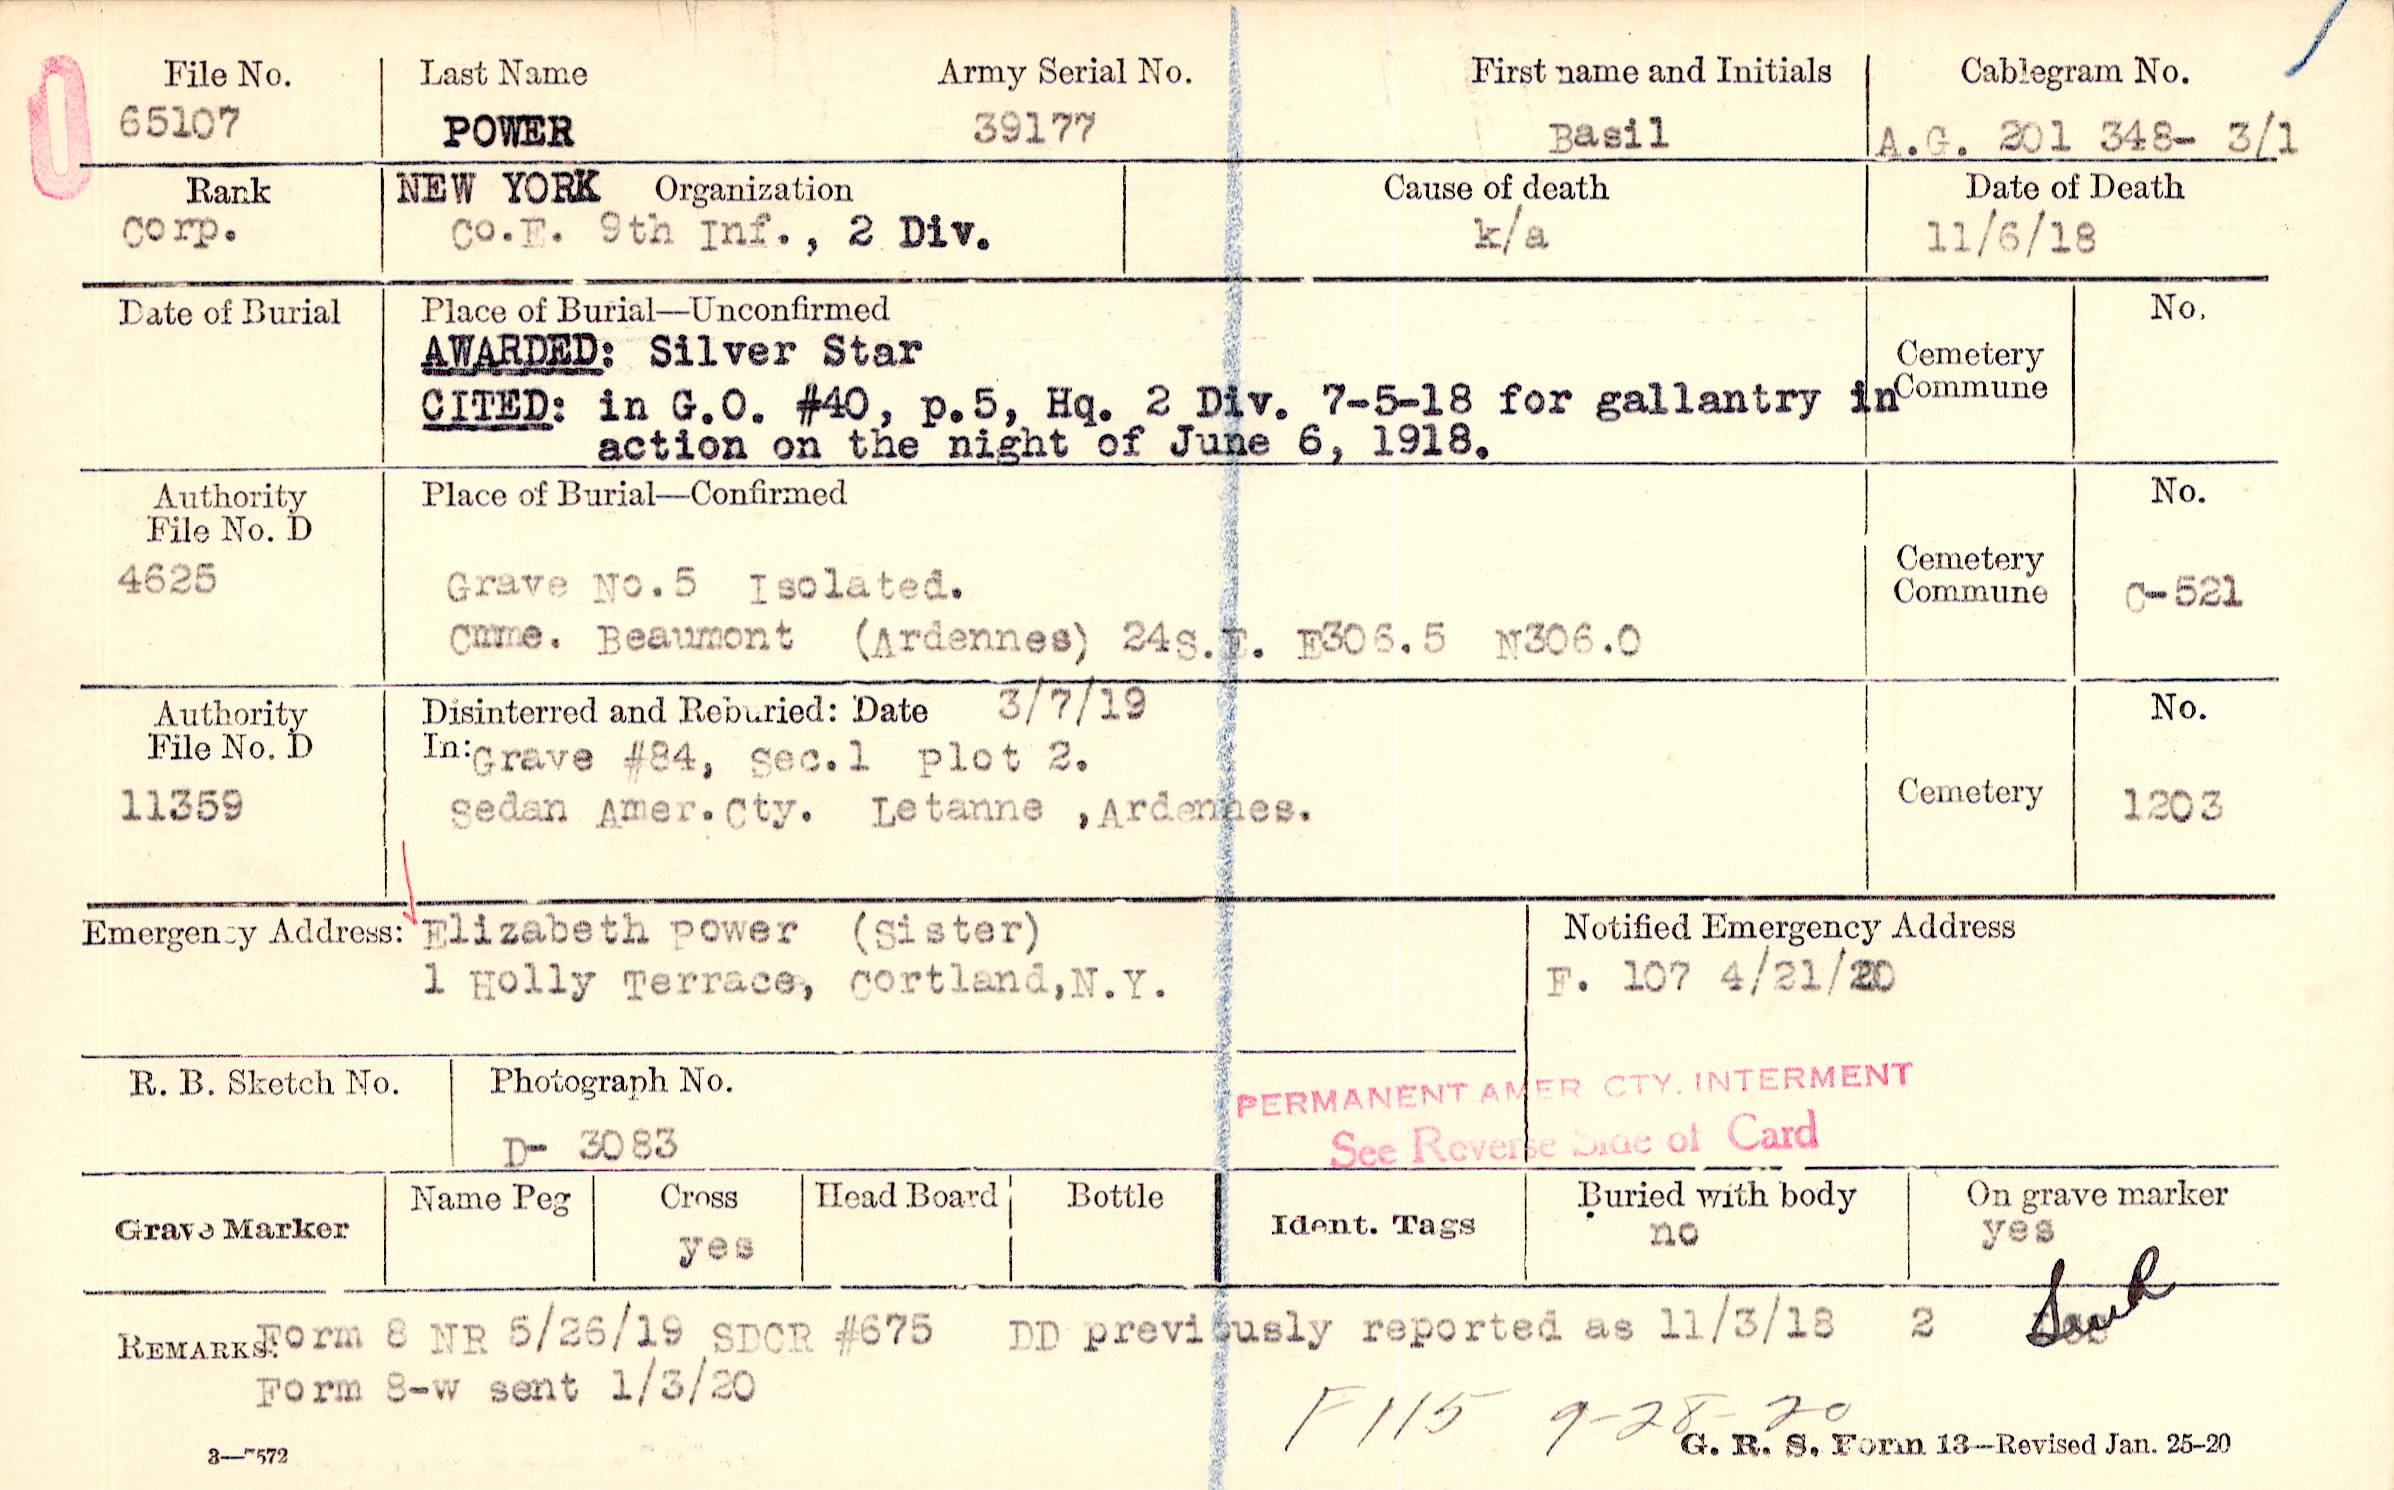 File No. Last Name Army Serial No. First name and Initials Cablegram No.
65107 POWER 39177 Basil A.G. 201 348- 3/1
Rank NEW YORK Organization Cause of death Date of Death
Corp. Co.E. 9th Inf., 2 Div. k/a 11/6/18
Date of Burial Place of Burial—Unconfirmed No.
AWARDED: Silver Star Cemetery
CITED: in G.O. #40, p.5, Hq. 2 Div. 7-5-18 for gallantry in Commune
action on the night of June 6, 1918.
Authority Place of Burial—Confirmed No.
File No. D
4625 Grave No.5 Isolated. Cemetery
Commune C-521
Cmme. Beaumont (Ardennes) 24S.E. E306.5 N306.0
Authority Disinterred and Reburied: Date 3/7/19 No.
File No. D In: Grave #84, Sec.1 Plot 2.
11359 Sedan Amer.Cty. Letanne ,Ardennes. Cemetery 1203
Emergency Address: Elizabeth Power (Sister) Notified Emergency Address
1 Holly Terrace, Cortland,N.Y. F. 107 4/21/20
R. B. Sketch No. Photograph No.
D- 3083
PERMANENT AMER CTY. INTERMENT
See Reverse Side of Card
Grave Marker Name Peg Cross Head Board Bottle Ident. Tags Buried with body On grave marker
yes no yes
REMARKS: Form 8 NR 5/26/19 SDCR #675 DD previously reported as 11/3/18 2
Form 8-w sent 1/3/20
F 115 9-28-20
3—7572 G. R. S. Form 13—Revised Jan. 25-20